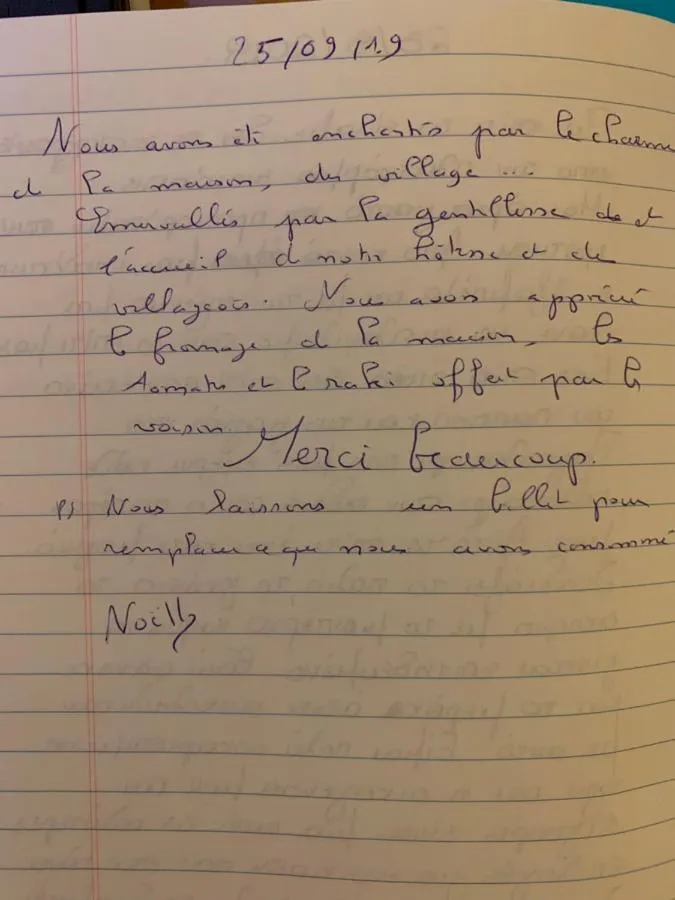 25/09/19
Nous avons été enchantés par le charme
de la maison, du village...
Emerveillés par la gentillesse de et
l'accueil de notre hôtesse et de
villageois. Nous avons apprécié
le fromage de la maison, les
tomates et le raki offert par le
voisin. Merci beaucoup.
PS Nous laissons un billet pour
remplacer ce que nous avons consommé
Noëlly